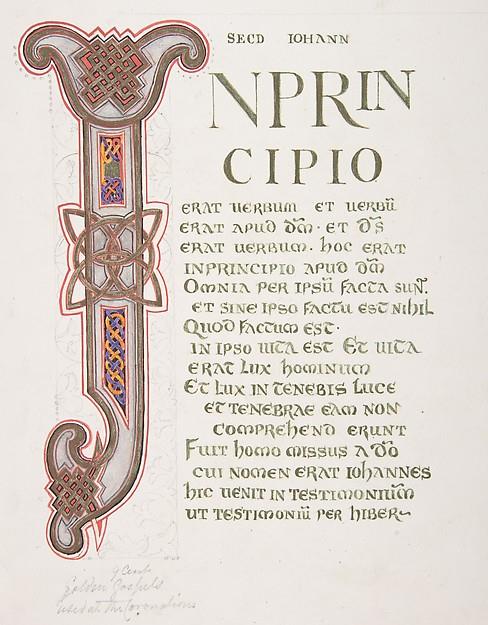 SECD IOHANN
INPRIN
CIPIO
ERAT UERBUM ET UERBŪ
ERAT APUD D̄M · ET D̄S
ERAT UERBUM · hOC ERAT
INPRINCIPIO APUD D̄M
OMNIA PER IPSŪ FACTA SUN̄.
ET SINE IPSO FACTŪ EST NIHIL
QUOD FACTUM EST ·
IN IPSO UITA EST ET UITA
ERAT LUX hOMINUM
ET LUX IN TENEBIS LUCE
ET TENEBRAE EAM NON
COMPREHEND ERUNT
FUIT hOMO MISSUS A D̄O
CUI NOMEN ERAT IOhANNES
hIC UENIT IN TESTIMONIUM̄
UT TESTIMONIŪ PER hIBER
9 Cent
Golden Gospels
used at the Coronations